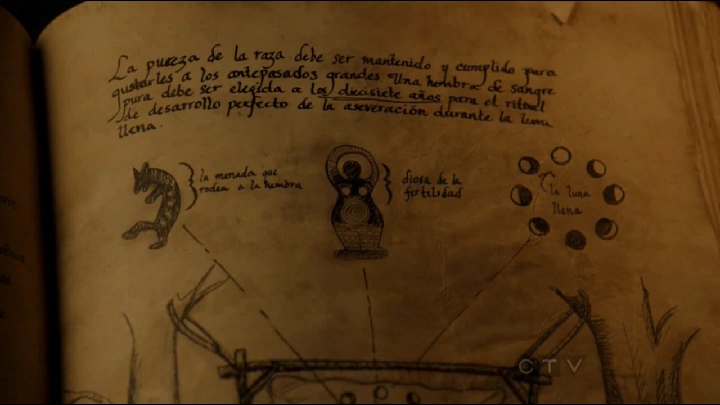 La pureza de la raza debe ser mantenido y cumplido para
gustarles a los antepasados grandes Una hembra de sangre
pura debe ser elegida a los diecisiete años para el ritual
de desarrollo perfecto de la aseveración durante la luna
llena.
la manada que
rodea a la hembra
diosa de la
fertilidad
la luna
llena
CTV